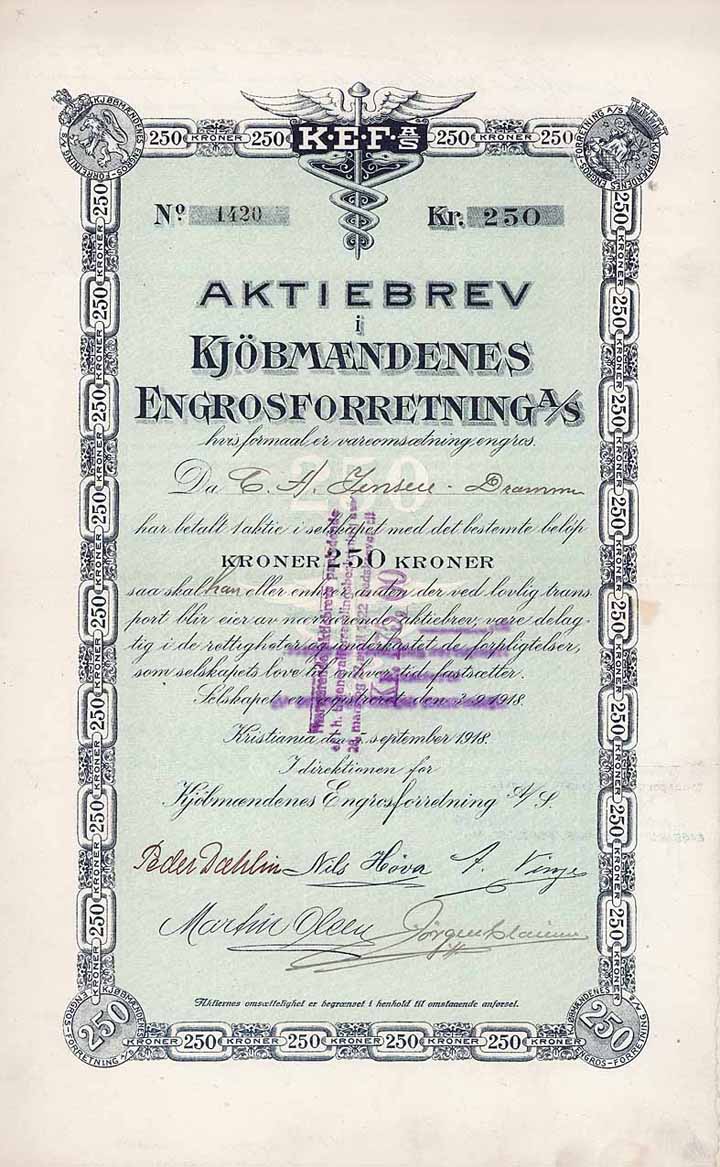 K·E·F A/S
250 KRONER 250 250 KRONER 250
KJØBMÆNDENES ENGROS-FORRETNING A/S
KJØBMÆNDENES ENGROS-FORRETNING A/S
Nº 1420 Kr. 250
AKTIEBREV
i
KJÖBMÆNDENES
ENGROSFORRETNING A/S
hvis formaal er vareomsætning engros.
250
Da C. A. Jensen - Drammen
har betalt 1 aktie i selskapet med det bestemte beløp
KRONER 250 KRONER
saa skal han eller enhver anden der ved lovlig trans
port blir eier av nærværende aktiebrev, være delag-
tig i de rettigheter og underkastet de forpligtelser,
som selskapets love til enhver tid fastsætter.
Selskapet er registreret den 3.9.1918.
Kristiania den september 1918.
I direktionen for
Kjöbmændenes Engrosforretning A/S.
Peder Dæhlin Nils Hova A. Vinje
Martin Olsen Jörgen
Aktiernes omsættelighet er begrænset i henhold til omstaaende anførsel.
KJØBMÆNDENES ENGROS-FORRETNING A/S 250
250 KJØBMÆNDENES ENGROS-FORRETNING A/S
KRONER 250 KRONER 250 KRONER 250 KRONER 250 KRONER 250 KRONER